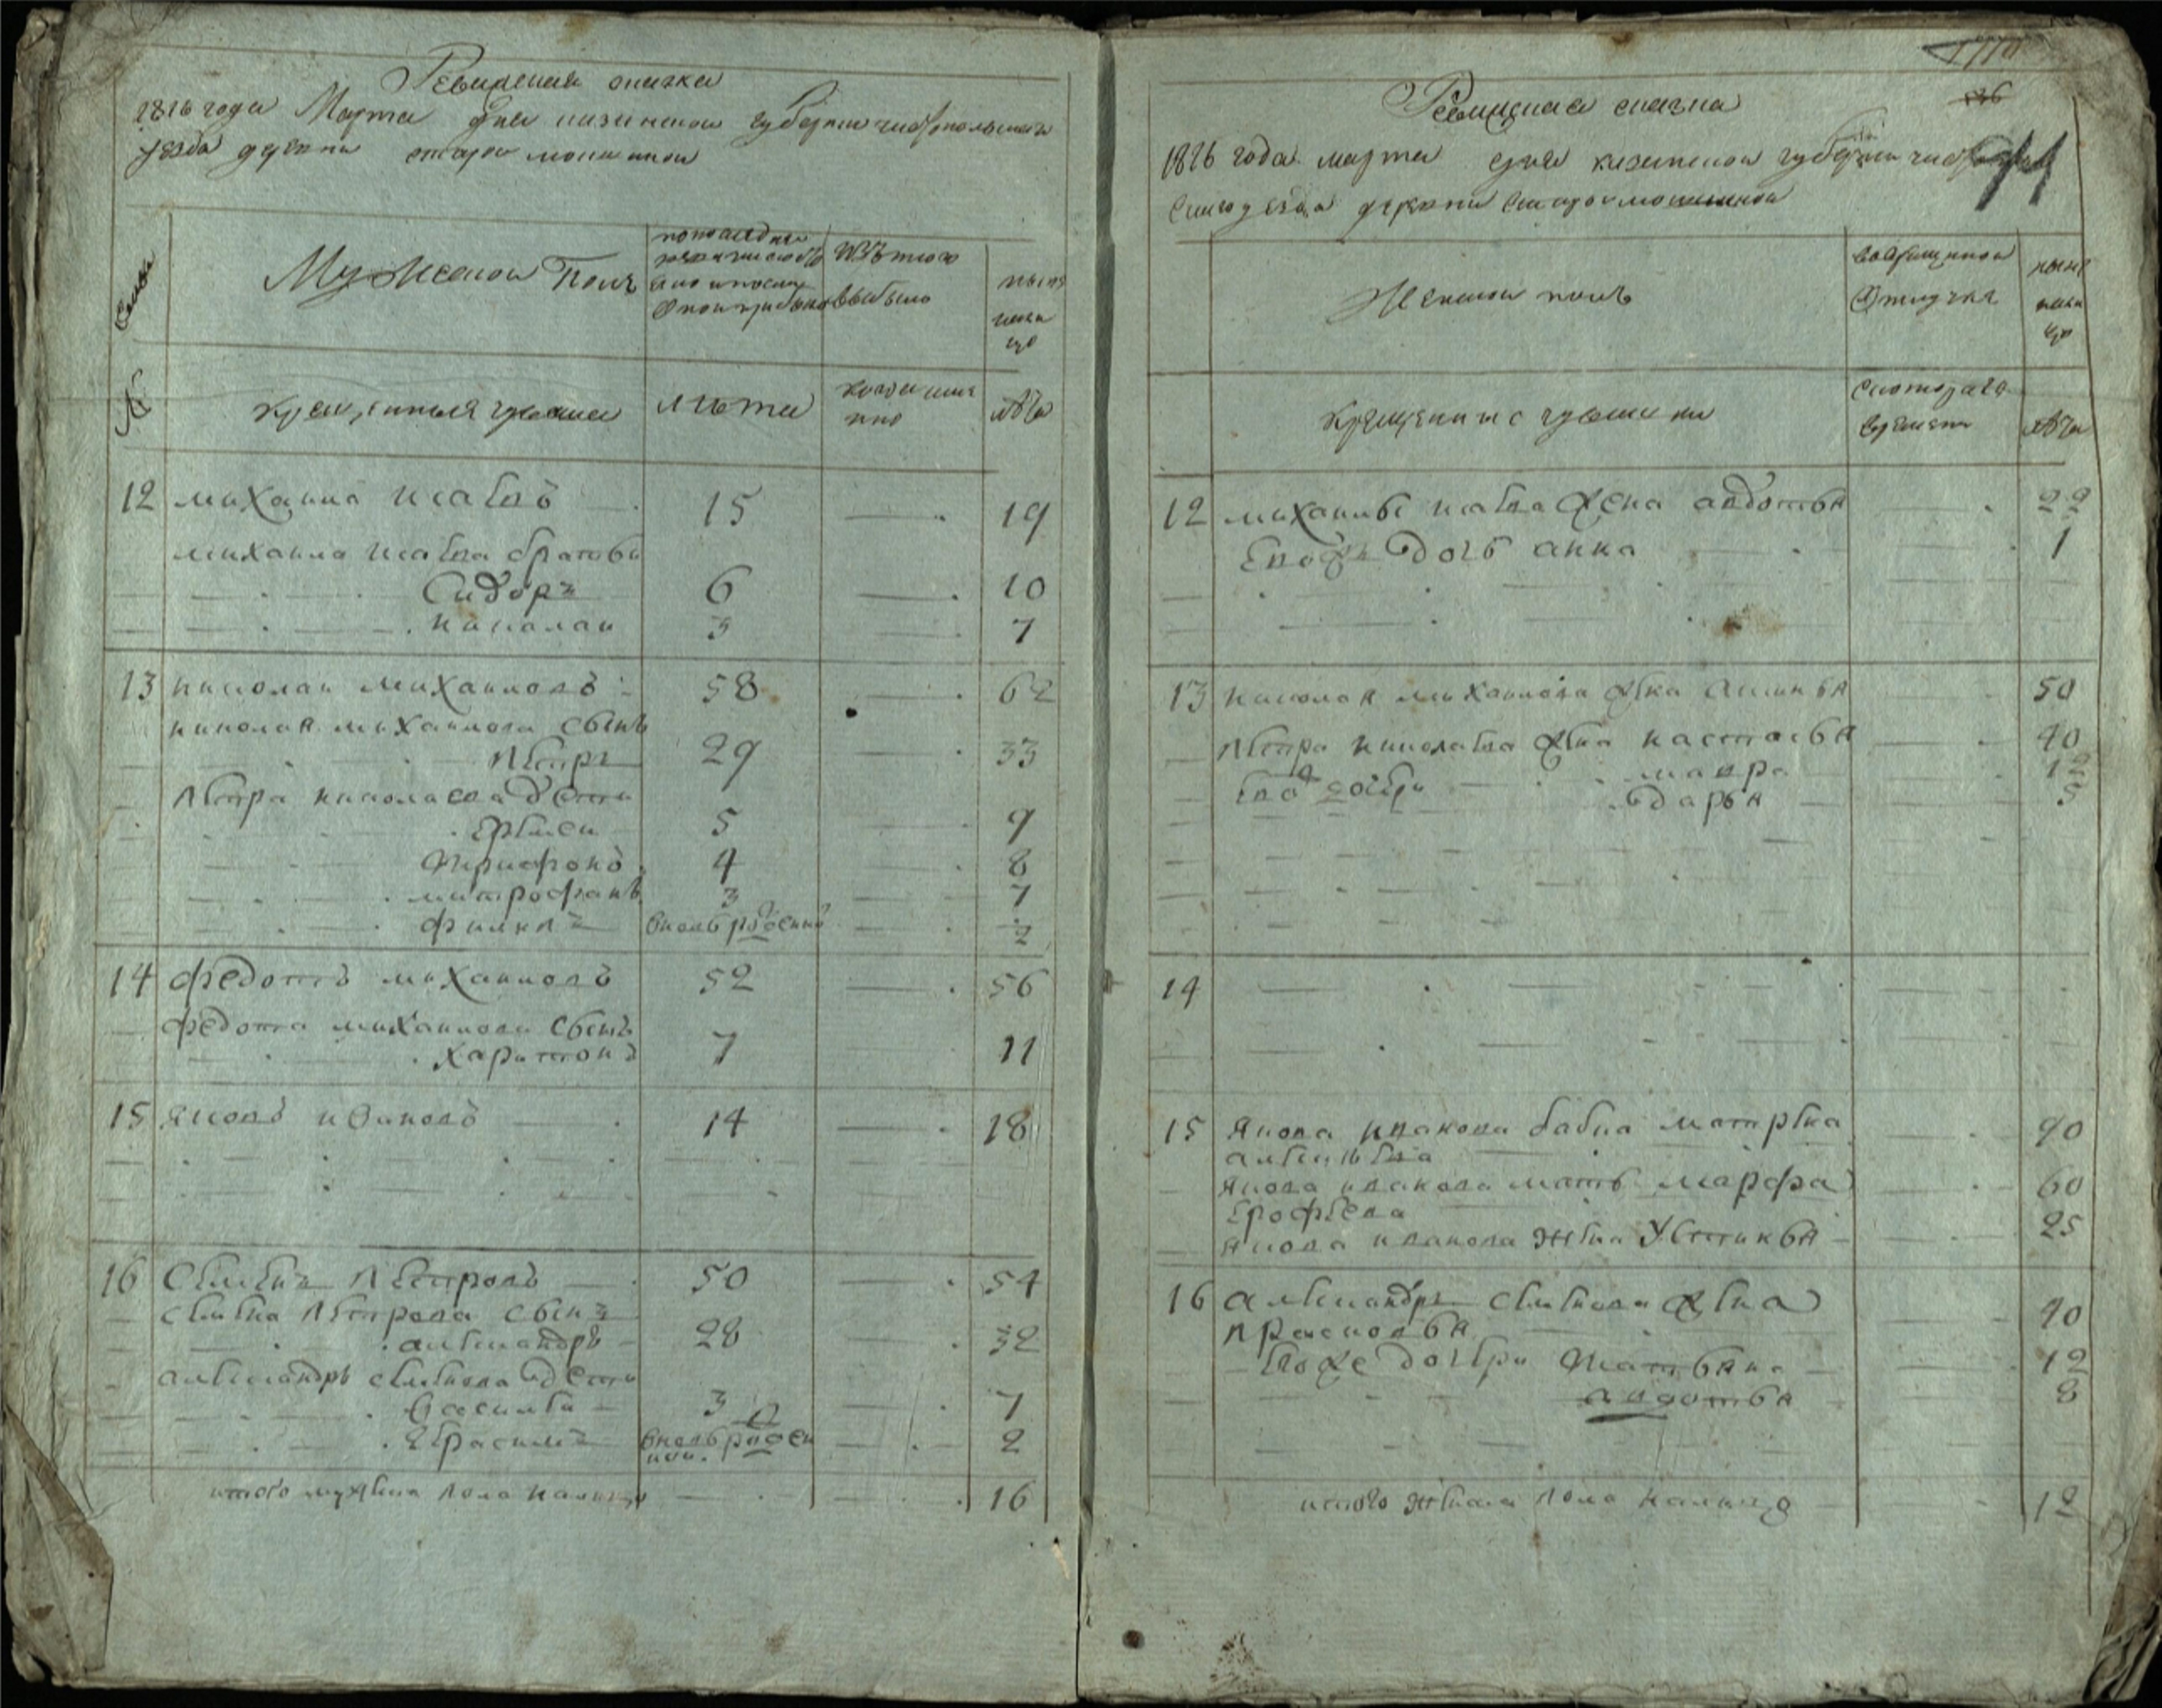 Ревиская сказка
1816 года Марта дня казанской губернии чистопольского
уезда деревни старой мокшиной
Семьи
Мужеской Полъ
по последней
ревизии состо
яло и после
оной прибыло
Изъ того
выбыло
ныне
нали
цо
№
крещеныя чуваша
лета
когда имя
нно
лета
12 михаила исаевъ 15 19
михаила исаева братья
Сидоръ 6 10
николаи 3 7
13 николаи михаиловъ 58 62
николая михаилова сынъ
петръ 29 33
петра николаева дети
Ермеи 5 9
трифонъ 4 8
митрофанъ 3 7
филипъ вновь рожденной 2
14 федотъ михаиловъ 52 56
федота михаилова сынъ
харитонъ 7 11
15 яковъ ивановъ 14 18
16 семенъ петровъ 50 54
семена петрова сынъ
александръ 28 32
александръ семенова дети
василеи 3 7
герасимъ вновь рожден
нои 2
итого мужеска пола налицо 16
1710
Ревиская сказка
1816 года марта дня казанской губернии чистополь
скаго уезда деревни старой мокшиной
11
Женской полъ
во временной
отлучке
ныне
нали
цо
крещеныя чувашки
с котораго
времени
лета
12 михаилы исаева жена авдотья 22
Евож дочь анна 1
13 николая михаилова жена аксинья 50
петра николаева жена настасья 40
Евож дочери мавра 12
дарья 5
14
15 якова иванова бабка матрена 90
алексеева
якова иванова мать марфа 60
Ерофеева
якова иванова жена Устинья 25
16 александръ семенова жена 40
прасковья
Евоже дочери татьяна 12
авдотья 8
итого женска пола налицо 12